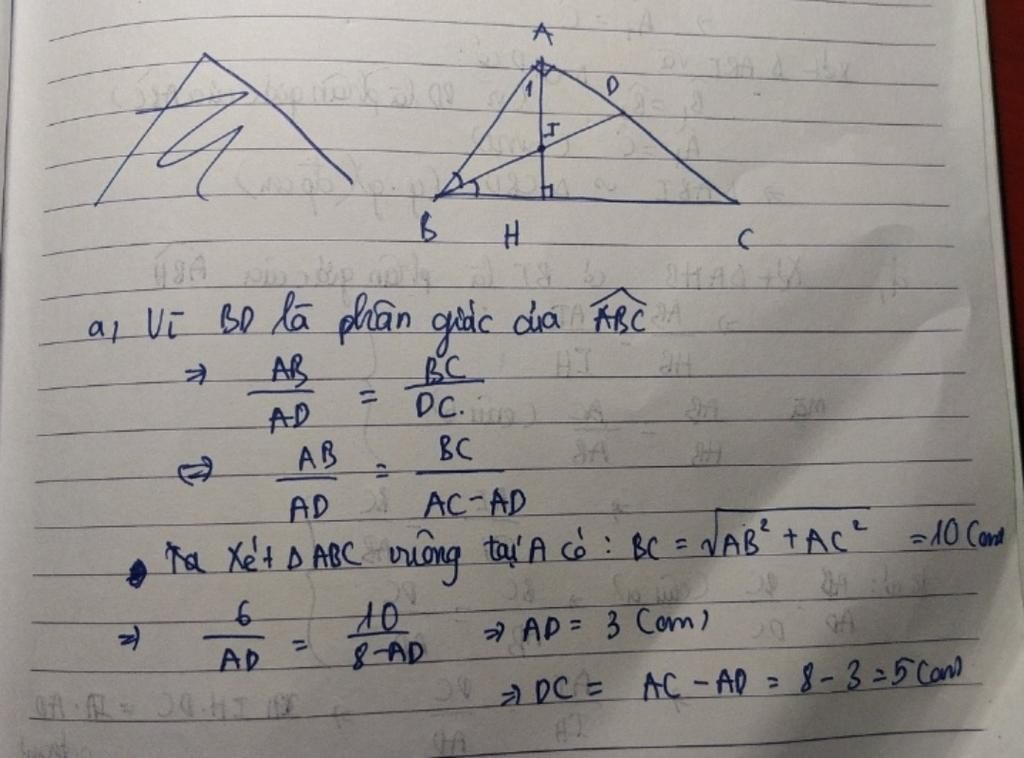 A
1
D
I
B H C
a, Vì BD là phân giác của \widehat{ABC}
⇒ AB/AD = BC/DC.
⇔ AB/AD = BC/(AC-AD)
Xét ΔABC vuông tại A có: BC = √(AB² + AC²) = 10 (cm)
⇒ 6/AD = 10/(8-AD) ⇒ AD = 3 (cm)
⇒ DC = AC - AD = 8 - 3 = 5 (cm)